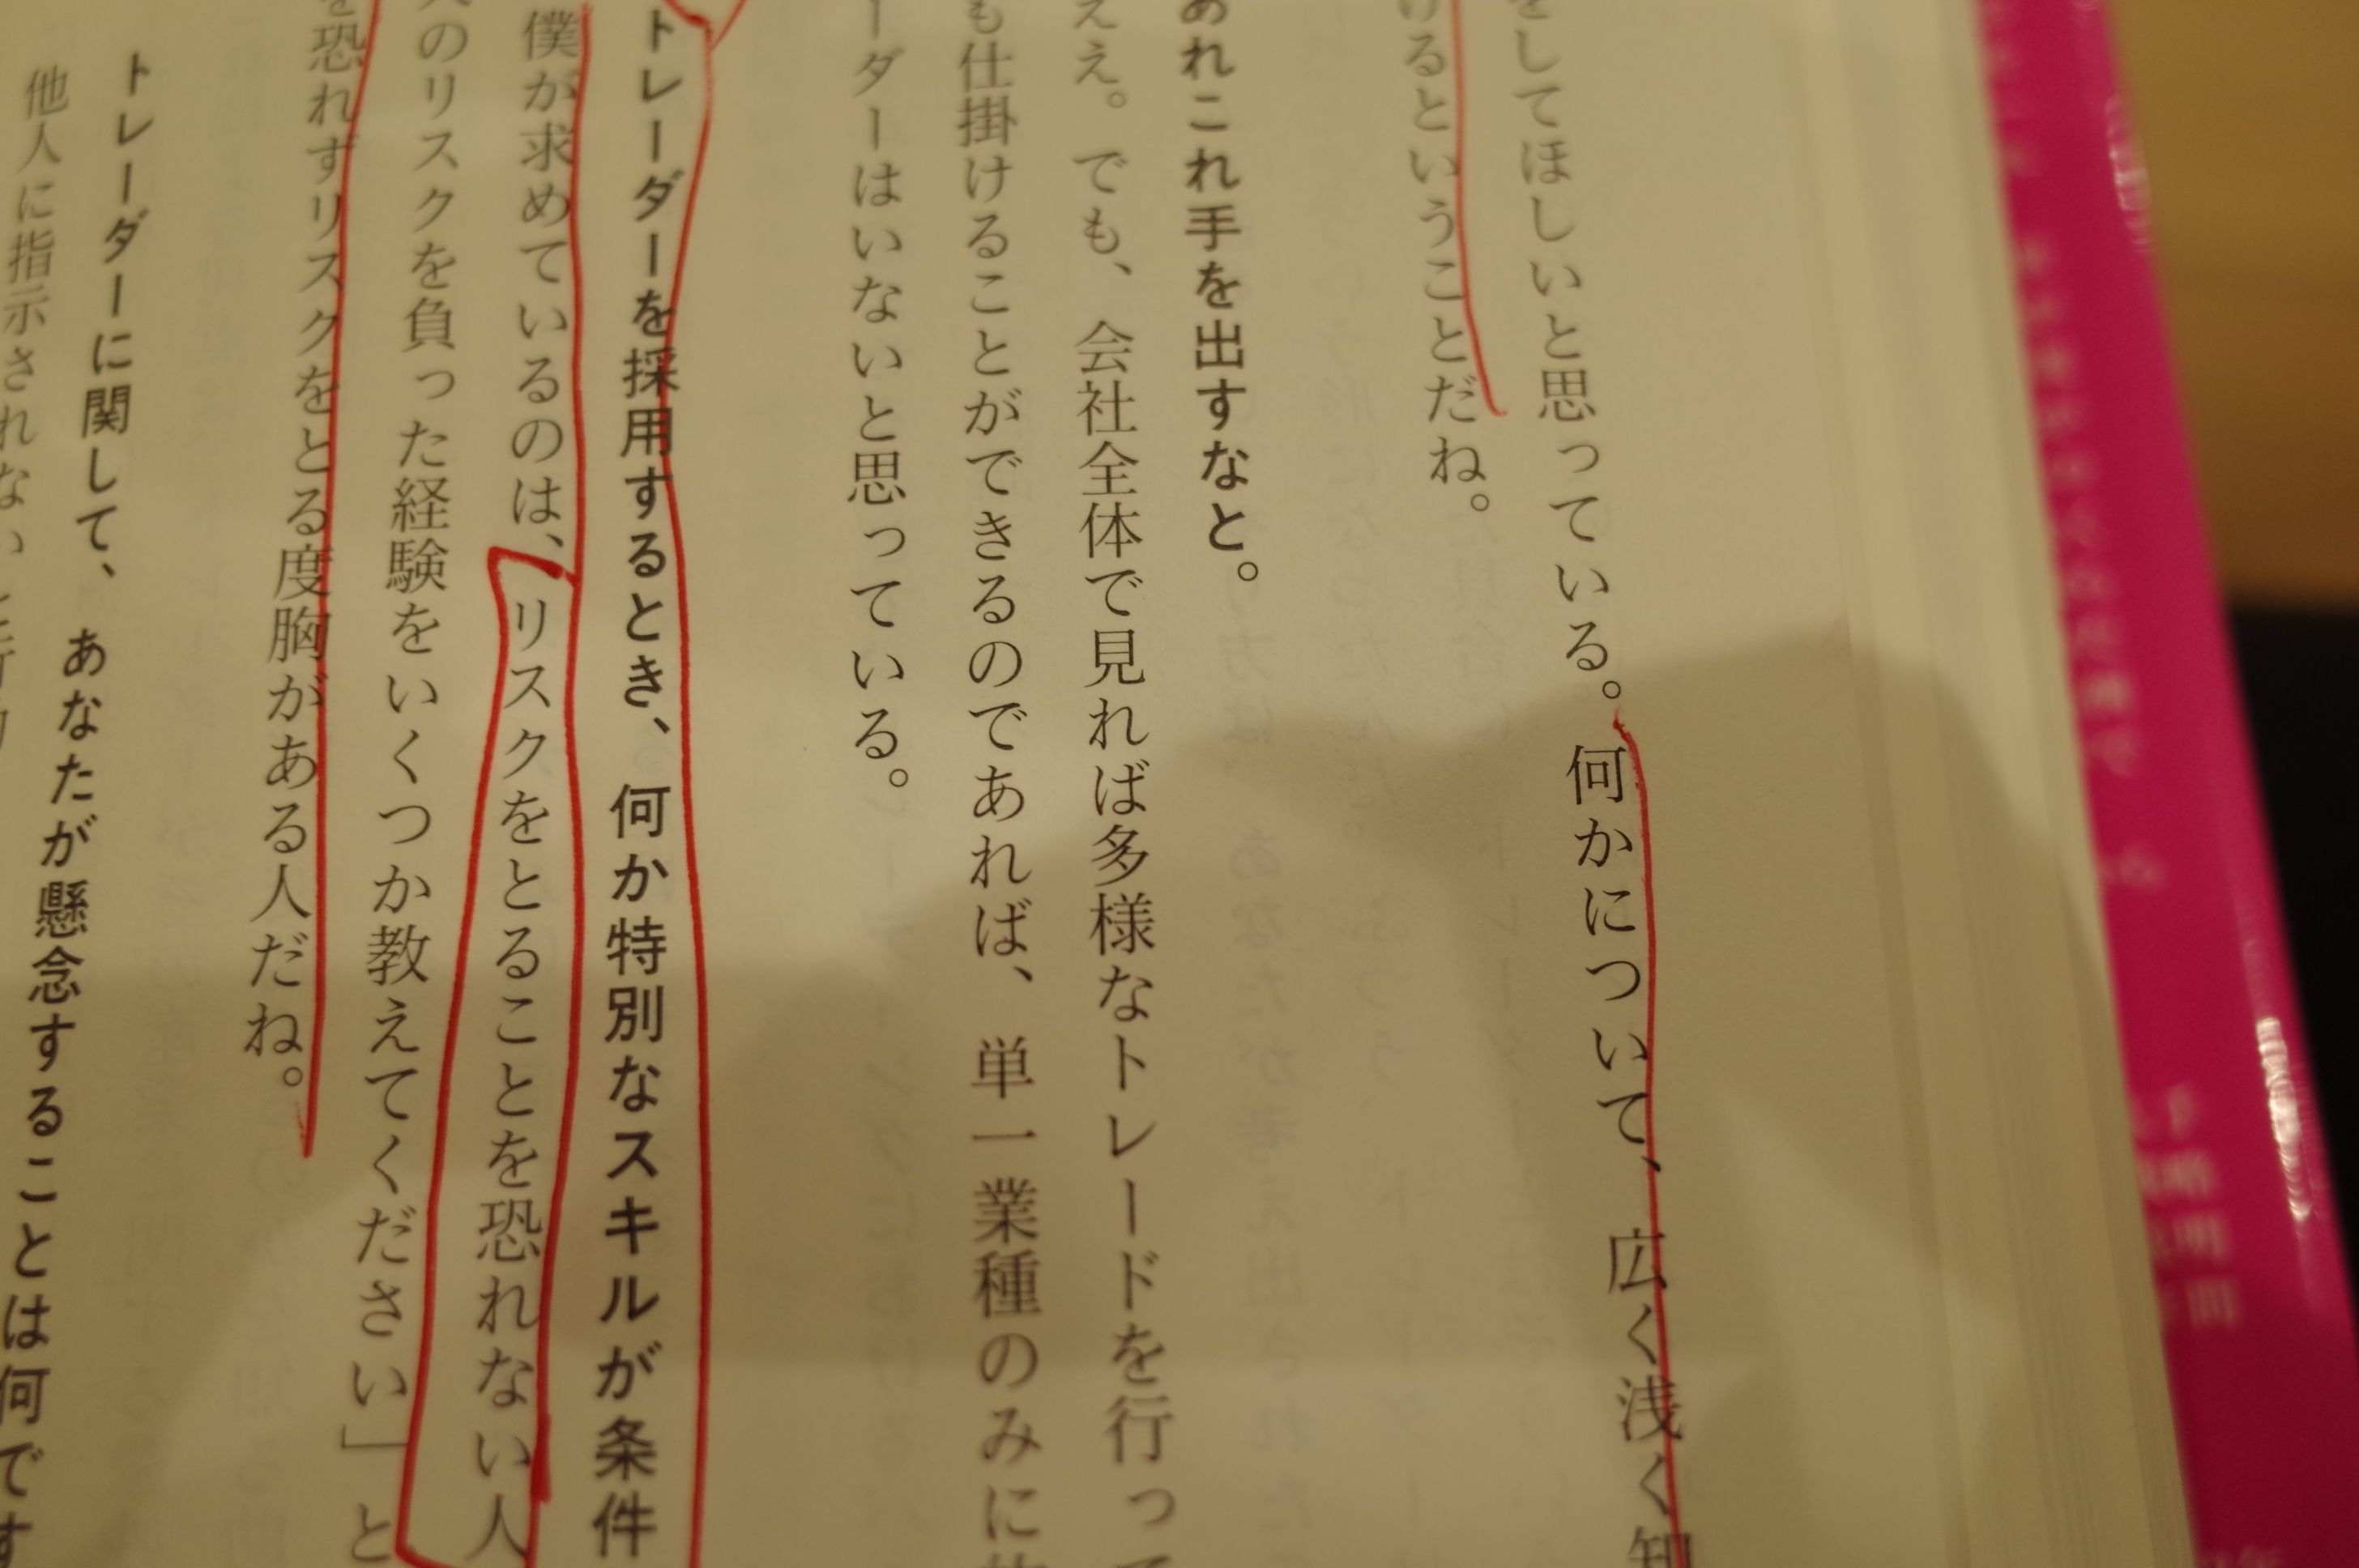 してほしいと思っている。何かについて、広く浅く知
けるということだね。
あれこれ手を出すなと。
ええ。でも、会社全体で見れば多様なトレードを行って
も仕掛けることができるのであれば、単一業種のみに
ーダーはいないと思っている。
トレーダーを採用するとき、何か特別なスキルが条件
僕が求めているのは、リスクをとることを恐れない人
のリスクを負った経験をいくつか教えてください」と
を恐れずリスクをとる度胸がある人だね。
トレーダーに関して、あなたが懸念することは何です
他人に指示されない